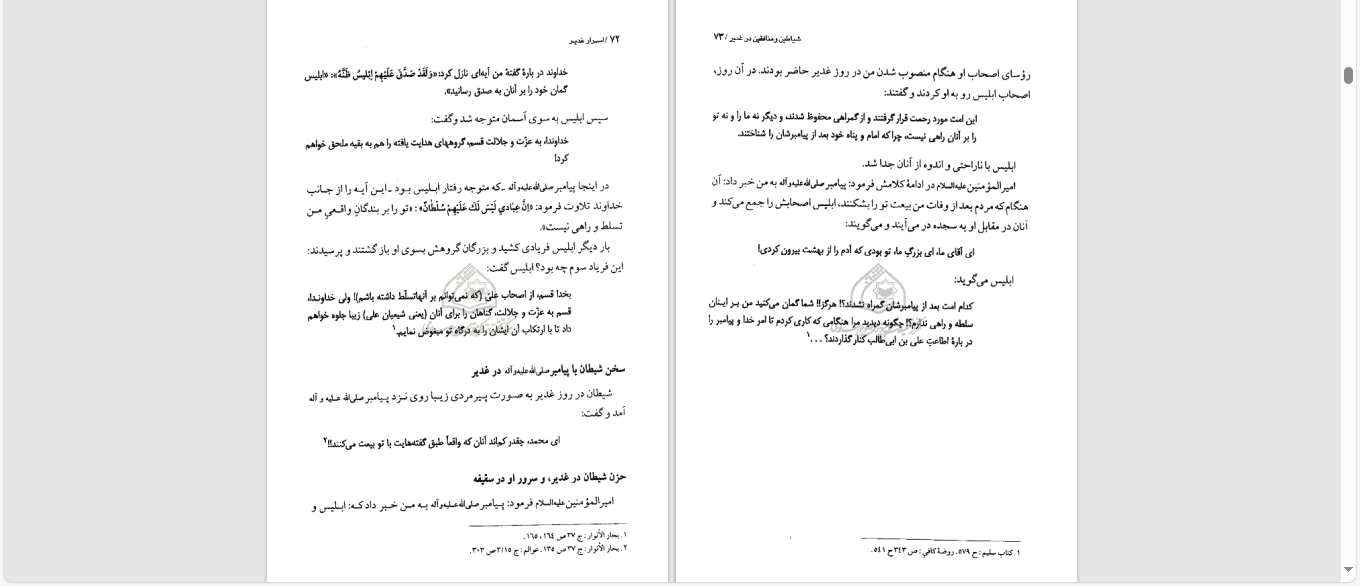 ۷۲ / اسرار غدیر
خداوند در بارهٔ گفتهٔ من آیه‌ای نازل کرد: «وَلَقَدْ صَدَّقَ عَلَیْهِمْ إِبْلِیسُ ظَنَّهُ»: «ابلیس
گمان خود را بر آنان به صدق رسانید».
سپس ابلیس به سوی آسمان متوجه شد و گفت:
خداوندا، به عزّت و جلالت قسم، گروههای هدایت یافته را هم به بقیه ملحق خواهم
کرد!
در اینجا پیامبر صلی‌الله‌علیه‌وآله ـ که متوجه رفتار ابلیس بود ـ این آیه را از جانب
خداوند تلاوت فرمود: «إِنَّ عِبَادِي لَیْسَ لَكَ عَلَیْهِمْ سُلْطَانٌ» : «تو را بر بندگانِ واقعیِ من
تسلط و راهی نیست».
بار دیگر ابلیس فریادی کشید و بزرگان گروهش بسوی او باز گشتند و پرسیدند:
این فریاد سوم چه بود؟ ابلیس گفت:
بخدا قسم، از اصحاب علی (که نمی‌توانم بر آنها تسلّط داشته باشم)! ولی خداوندا،
قسم به عزّت و جلالت، گناهان را برای آنان (یعنی شیعیان علی) زیبا جلوه خواهم
داد تا با ارتکاب آن ایشان را به درگاه تو مبغوض نمایم.۱
سخن شیطان با پیامبر صلی‌الله‌علیه‌وآله در غدیر
شیطان در روز غدیر به صورت پیرمردی زیبا روی نزد پیامبر صلی‌الله علیه و آله
آمد و گفت:
ای محمد، چقدر کم‌اند آنان که واقعاً طبق گفته‌هایت با تو بیعت می‌کنند!!۲
حزن شیطان در غدیر، و سرور او در سقیفه
امیرالمؤمنین علیه‌السلام فرمود: پیامبر صلی‌الله‌علیه‌وآله به من خبر داد که: ابلیس و
۱. بحار الأنوار : ج ۳۷ ص ۱۶۴ ، ۱۶۵ .
۲. بحار الأنوار : ج ۳۷ ص ۱۳۵. عوالم : ج ۳/۱۵ ص ۳۰۳.
شیاطین و منافقین در غدیر / ۷۳
رؤسای اصحاب او هنگام منصوب شدن من در روز غدیر حاضر بودند. در آن روز،
اصحاب ابلیس رو به او کردند و گفتند:
این امت مورد رحمت قرار گرفتند و از گمراهی محفوظ شدند، و دیگر نه ما را و نه تو
را بر آنان راهی نیست، چرا که امام و پناه خود بعد از پیامبرشان را شناختند.
ابلیس با ناراحتی و اندوه از آنان جدا شد.
امیرالمؤمنین علیه‌السلام در ادامهٔ کلامش فرمود: پیامبر صلی‌الله‌علیه‌وآله به من خبر داد: آن
هنگام که مردم بعد از وفات من بیعت تو را بشکنند، ابلیس اصحابش را جمع می‌کند و
آنان در مقابل او به سجده در می‌آیند و می‌گویند:
ای آقای ما، ای بزرگ ما، تو بودی که آدم را از بهشت بیرون کردی!
ابلیس می‌گوید:
کدام امت بعد از پیامبرشان گمراه نشدند؟! هرگز!! شما گمان می‌کنید من بر اینان
سلطه و راهی ندارم؟! چگونه دیدید مرا هنگامی که کاری کردم تا امر خدا و پیامبر را
در بارهٔ اطاعتِ علی بن ابی‌طالب کنار گذاردند؟ . . .۱
۱. کتاب سلیم : ح ۵۷۹. روضهٔ کافی : ص ۳۴۳ ح ۵۴۱.